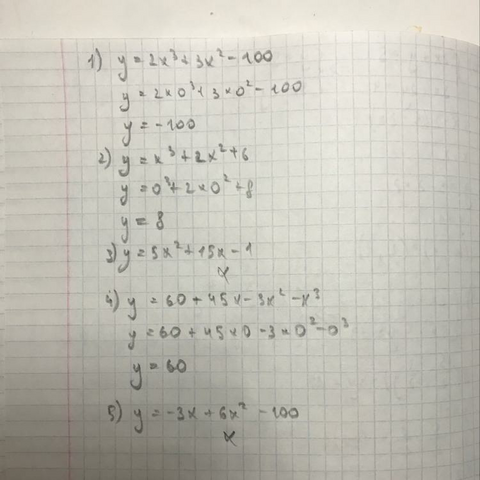 1) y = 2x³ + 3x² - 100
y = 2×0³ + 3×0² - 100
y = -100
2) y = x³ + 2x² + 6
y = 0³ + 2×0² + 8
y = 8
3) y = 5x² + 15x - 1
x
4) y = 60 + 45x - 3x² - x³
y = 60 + 45×0 - 3×0² - 0³
y = 60
5) y = -3x + 6x² - 100
x